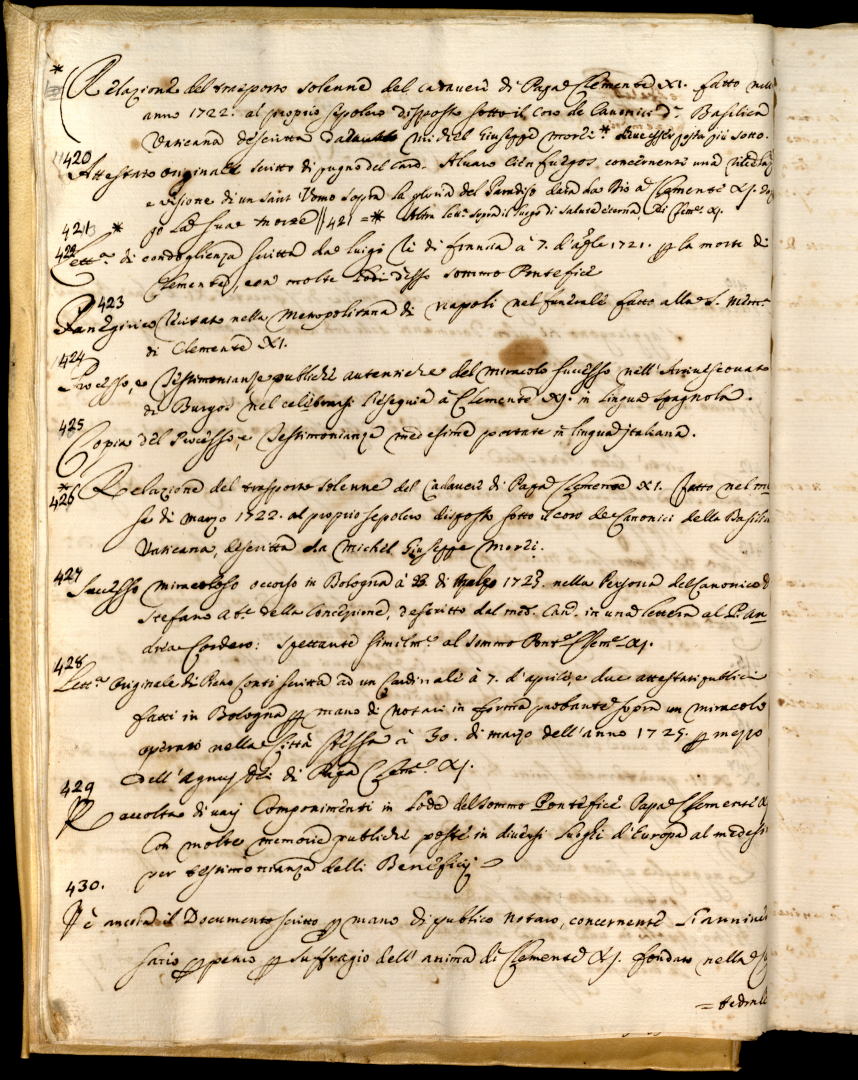 * Relazione del trasporto solenne del cadavere di Papa Clemente XI. fatto nell
anno 1722. al proprio sepolcro disposto sotto il Coro de Canonici d. Basilica
Vaticana descritta da Michel Giuseppe Morei * posta più sotto.
420
Attestato originale scritto di pugno del Card. Alvaro Cienfuegos, concernente una
e visione di un sant Uomo sopra la gloria del Paradiso data da Dio a Clemente XI.
po la sua morte // 421 = * Altra sopra il luogo di salute eterna, di Clem. XI.
421 *
422
Lett.ª di condoglienza scritta da Luigi Re di Francia à 7. d'aple 1721. p la morte di
Clemente, con molte Lodi d'esso sommo Pontefice
423
Panegirico recitato nella Metropolitana di Napoli nel funerale fatto alla S. mem.
di Clemente XI.
424
Processo, e Testimonianze publiche autentiche del miracolo successo nell'Arcivescovato
di Burgos nel celebrarsi l'esequia à Clemente XI. in lingua spagnola.
425
Copia del Processo, e Testimonianza medesima portate in lingua jtaliana.
* 426
Relazione del trasporto solenne del Cadavere di Papa Clemente XI. fatto nel me
se di marzo 1722. al proprio sepolcro disposto sotto il coro de Canonici della Basilica
Vaticana, descritta da Michel Giuseppe Morei.
427
Successo miracoloso occorso in Bologna à 28. di 1723. nella Persona del Canonico D
Stefano Ab.te della Concezione, descritto dal med. Can. in una lettera al P. An
drea Cordero: spettante similm.e al sommo Pont.e Clem.e XI.
428
Lett.ª originale di Piero Conti scritta ad un Cardinale à 7. d'aprile, e due attestati publici
fatti in Bologna p mano di notari in forma probante sopra un miracolo
operato nella Città stessa à 30. di marzo dell'anno 1725. p mezzo
dell'Agnus Dei di Papa Clem.e XI.
429
Raccolta di varij Componimenti in Lode del sommo Pontefice Papa Clemente X
Con molte memorie publiche poste in diversi luoghi d'Europa al medesi
per testimonianza delli Beneficij
430.
V'è ancora il Documento scritto p mano di publico Notaro, concernente l'anniver
sario p p suffragio dell'anima di Clemente XI. fondato nella